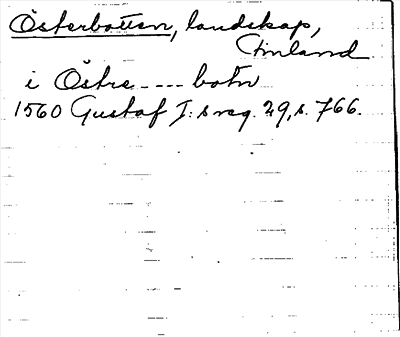 Österbotten, landskap,
Finland
i Östre---- botn
1560 Gustaf I:s reg. 29, s. 766.